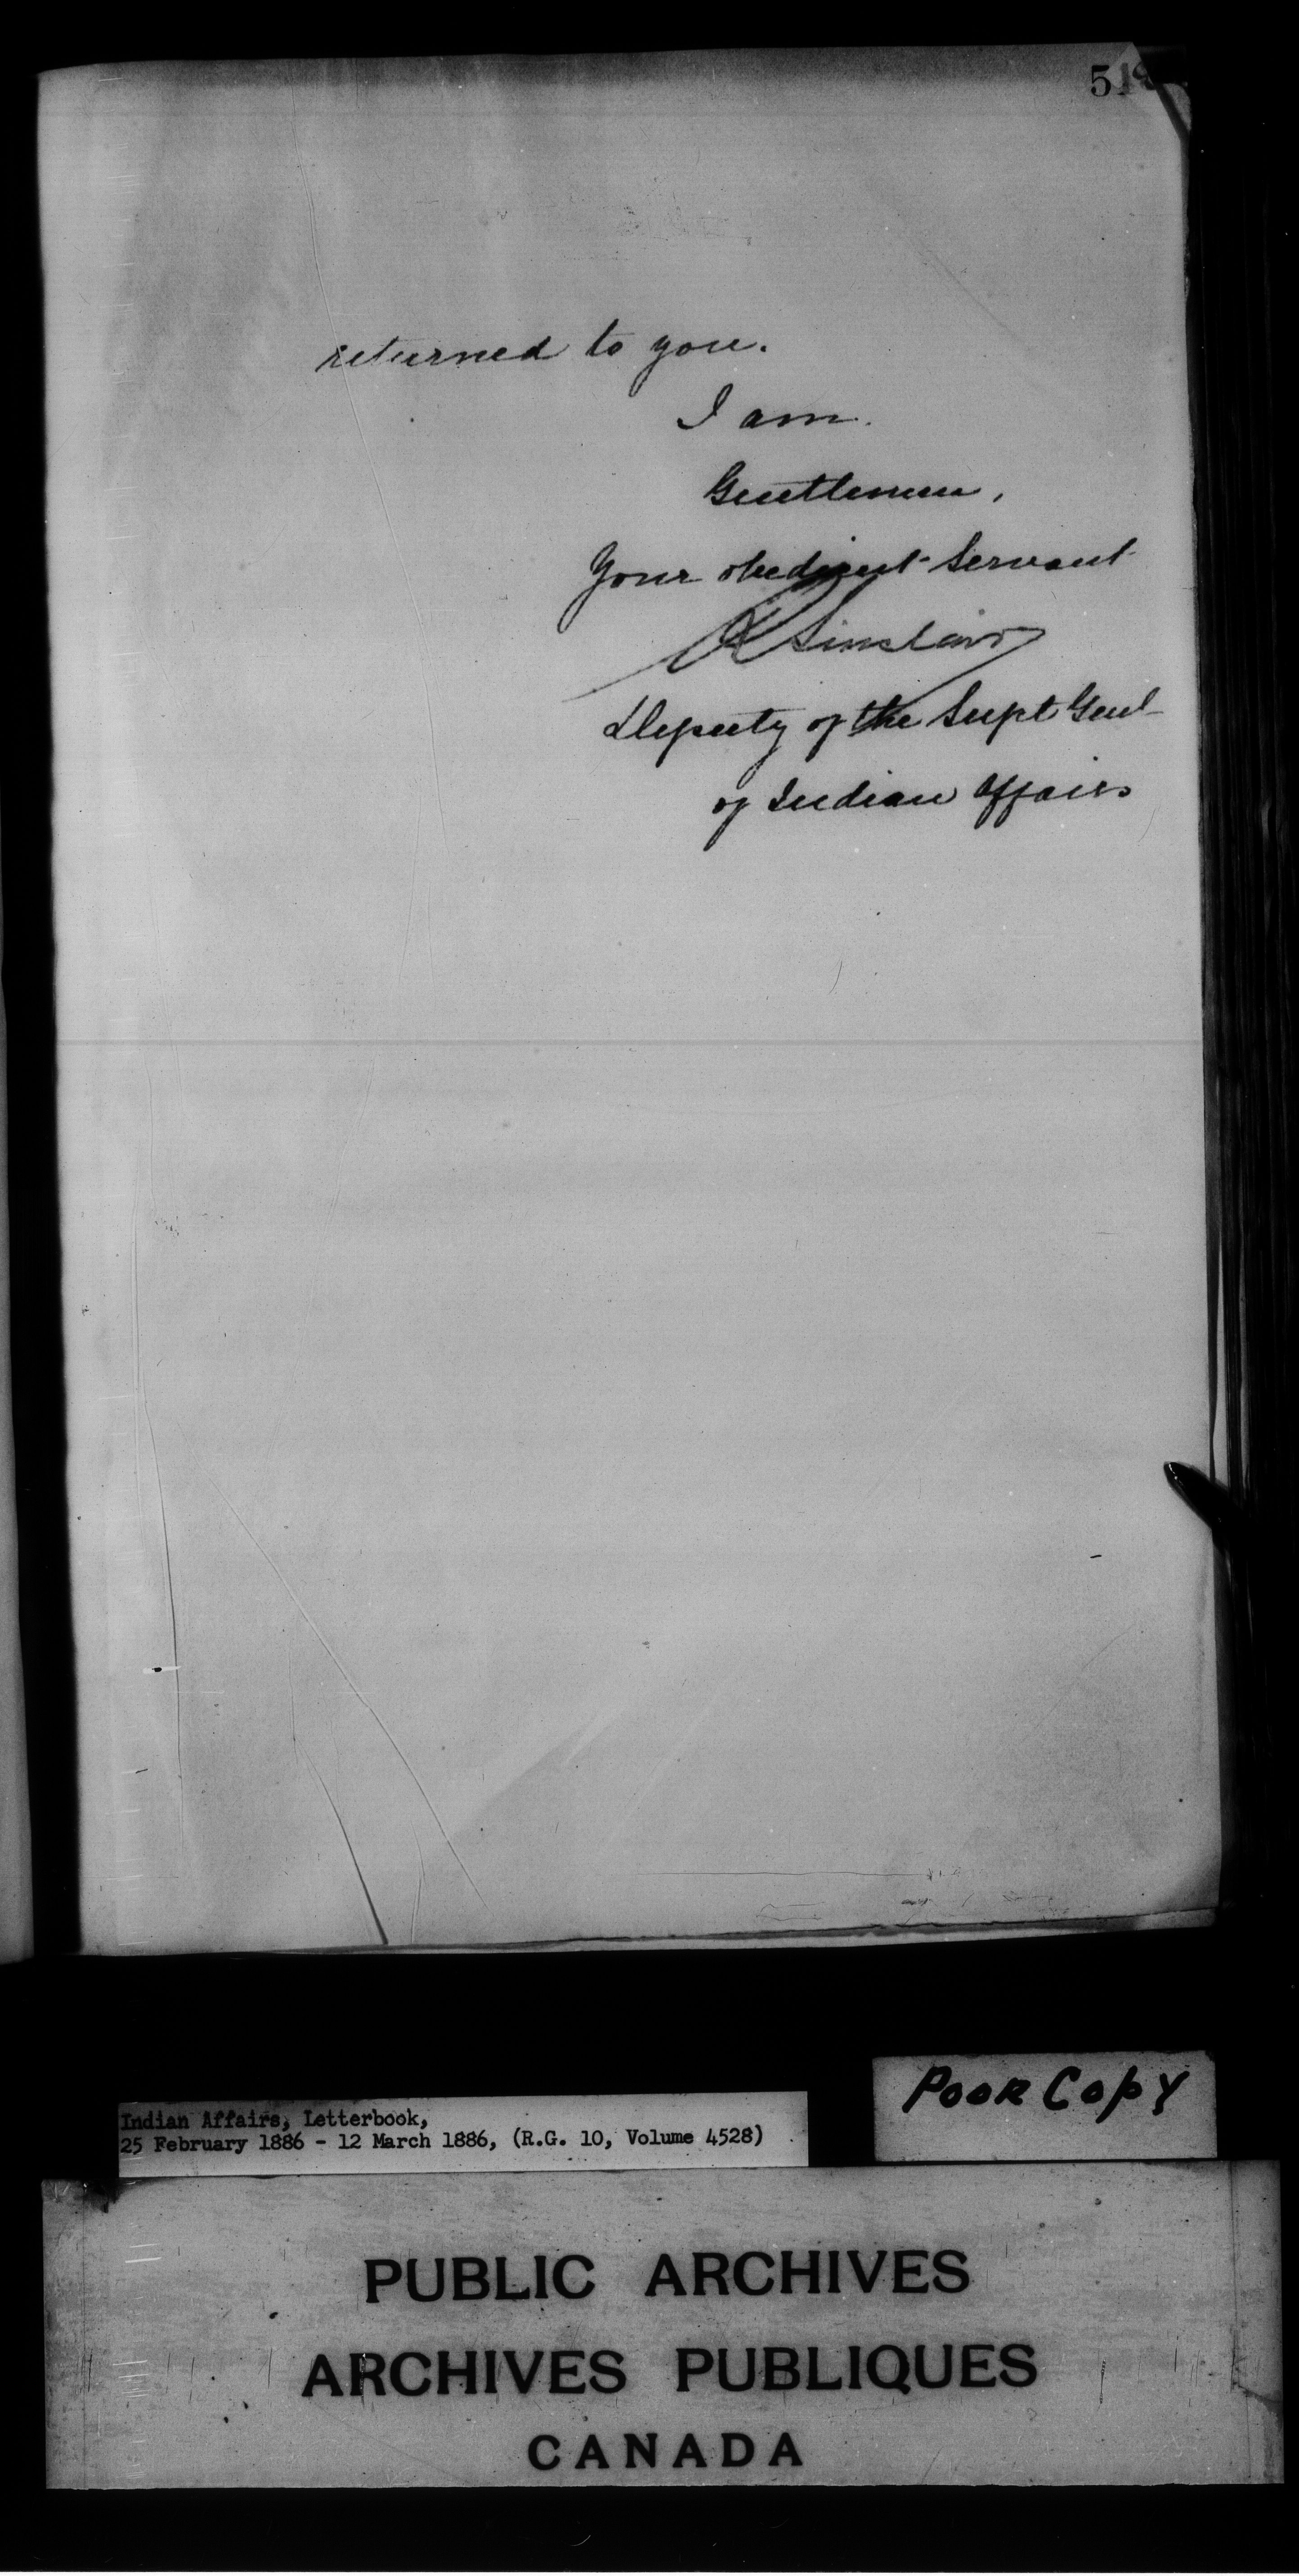 returned to you.
I am.
Gentlemen,
Your obedient Servant
Sinclair
Deputy of the Supt Genl
of Indian Affairs
Poor Copy
Indian Affairs, Letterbook,
25 February 1886 - 12 March 1886, (R.G. 10, Volume 4528)
PUBLIC ARCHIVES
ARCHIVES PUBLIQUES
CANADA